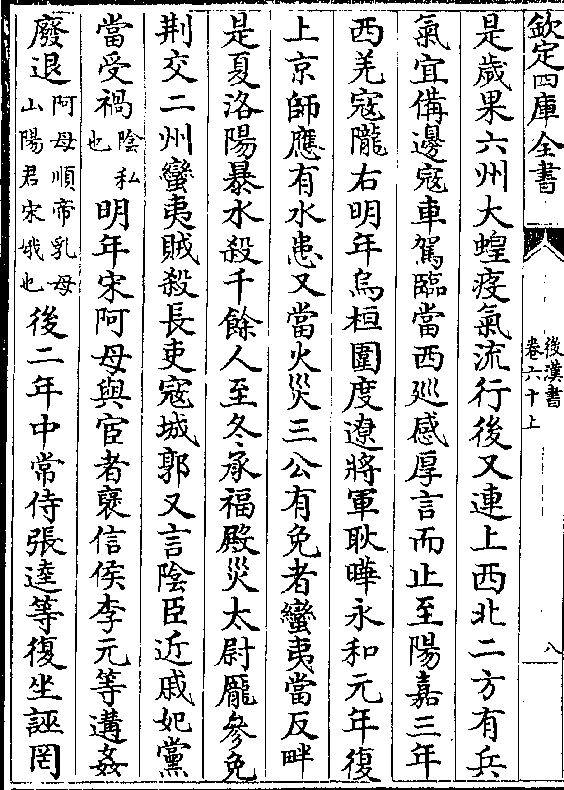 欽定四庫全書
後漢書
卷六十上
八
是歲果六州大蝗疫氣流行後又連上西北二方有兵
氣宜備邊寇車駕臨當西巡感厚言而止至陽嘉三年
西羌寇隴右明年烏桓圍度遼將軍耿曄永和元年復
上京師應有水患又當火災三公有免者蠻夷當反畔
是夏洛陽暴水殺千餘人至冬承福殿災太尉龎參免
荆交二州蠻夷賊殺長吏寇城郭又言陰臣近戚妃黨
當受禍陰私也明年宋阿母與宦者褒信侯李元等遘姦
廢退阿母順帝乳母山陽君宋娥也後二年中常侍張逵等復坐誣罔